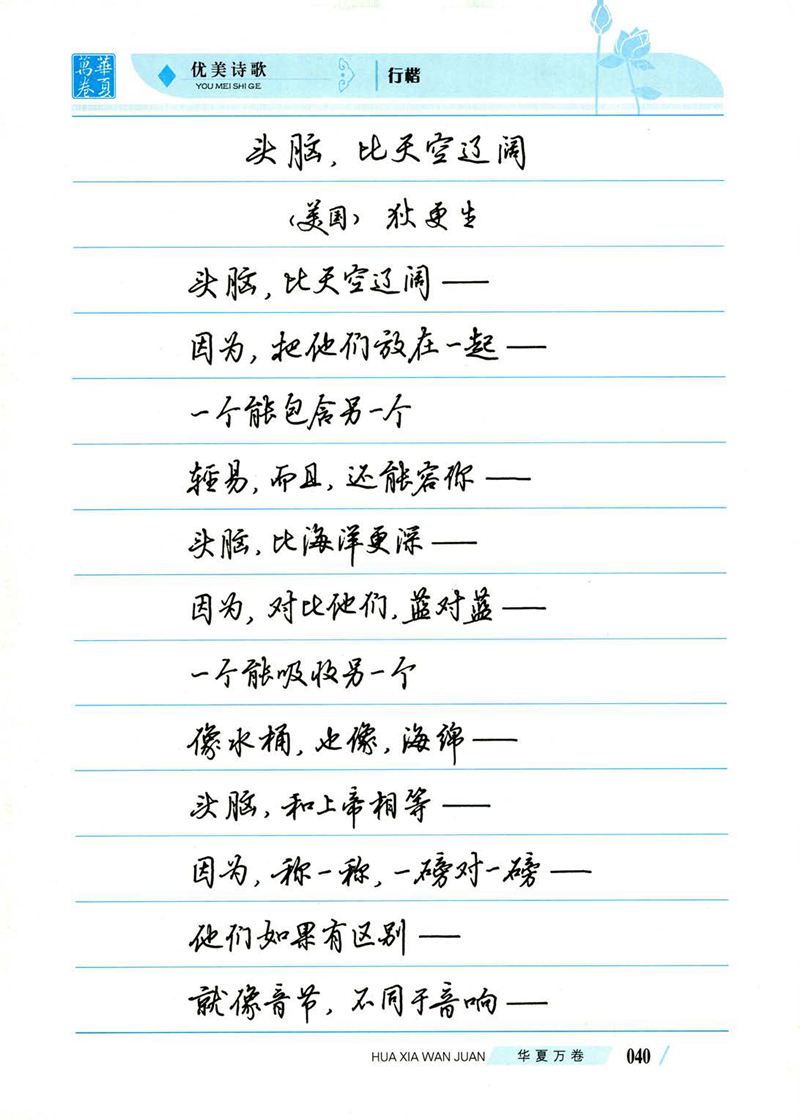 華夏萬卷
优美诗歌
YOU MEI SHI GE
行楷
头脑，比天空辽阔
（美国） 狄更生
头脑，比天空辽阔——
因为，把他们放在一起——
一个能包含另一个
轻易，而且，还能容你——
头脑，比海洋更深——
因为，对比他们，蓝对蓝——
一个能吸收另一个
像水桶，也像，海绵——
头脑，和上帝相等——
因为，称一称，一磅对一磅——
他们如果有区别——
就像音节，不同于音响——
HUA XIA WAN JUAN
华夏万卷
040